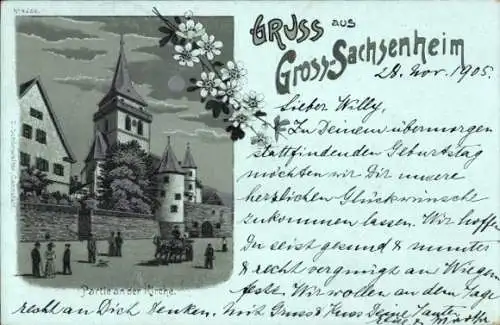 GRUSS AUS
Gross-Sachsenheim
28. Nov. 1905.
Lieber Willy,
Zu Deinem übermorgen
stattfindenden Geburtstag
möchten wir Dir unsere
herzlichen Glückwünsche
zukommen lassen. Wir hoffen
Du seist gesund & munter
& recht vergnügt am Wiegen
feste. Wir wollen an dem Tage
recht an Dich denken. Mit Gruss & Kuss Deine Tante
Partie an der Kirche.